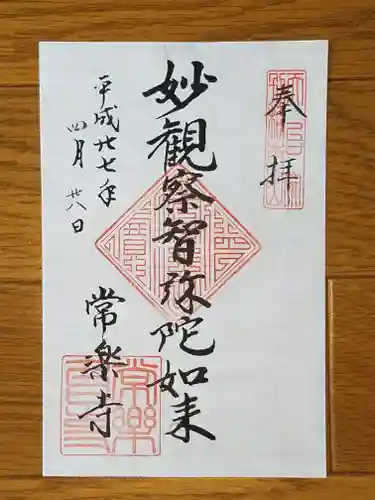 奉拝
妙觀察智弥陀如来
平成廿七年
四月廿八日
常楽寺